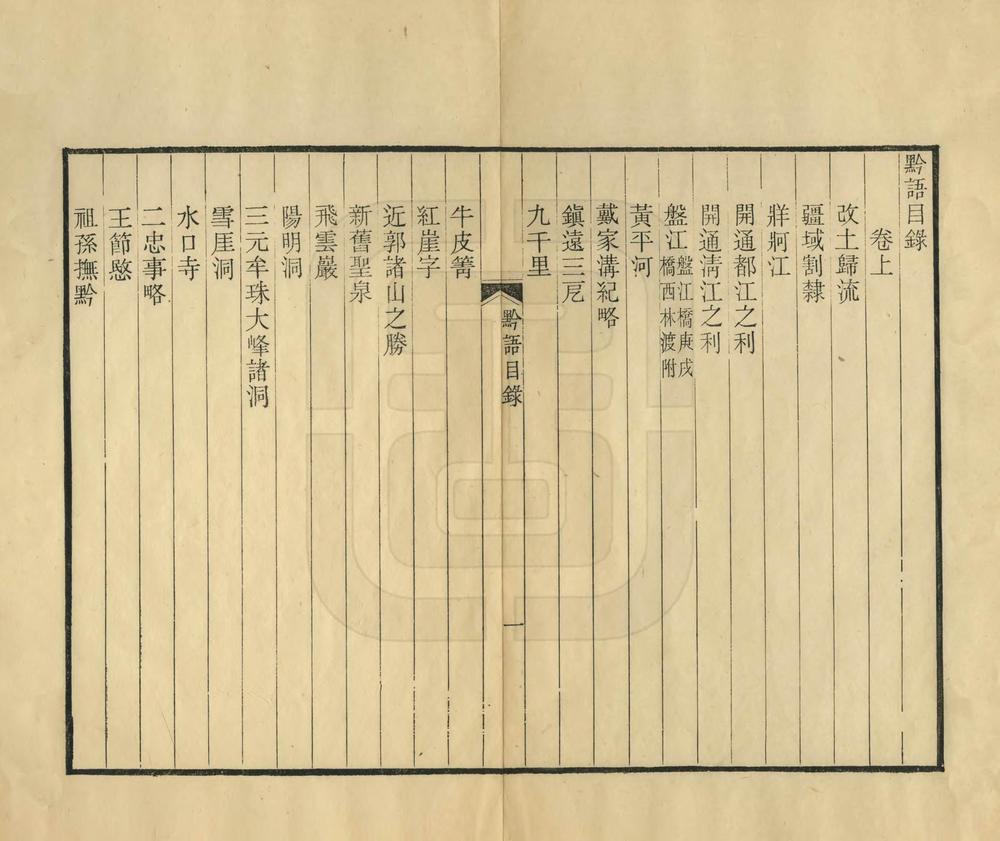 黔語目錄
卷上
改土歸流
疆域割隸
牂牁江
開通都江之利
開通淸江之利
盤江盤江橋庚戌橋西林渡附
黃平河
戴家溝紀略
鎭遠三卮
九千里
黔語目錄
一
牛皮箐
紅崖字
近郭諸山之勝
新舊聖泉
飛雲巖
陽明洞
三元牟珠大峰諸洞
雪厓洞
水口寺
二忠事略
王節愍
祖孫撫黔